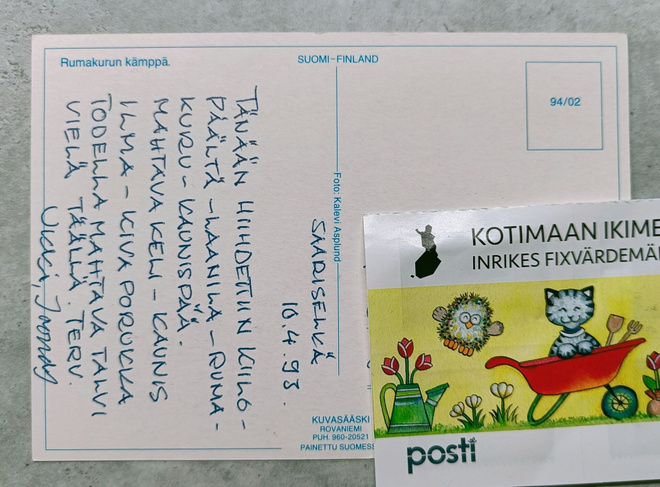 Rumakurun kämppä.
SUOMI–FINLAND
94/02
Foto: Kalevi Asplund
SAARISELKÄ
10.4.93.
TÄNÄÄN HIIHDETTIIN KIILO-
PÄÄLTÄ - LAANILA - RUMA-
KURU - KAUNISPÄÄ.
MAHTAVA KELI - KAUNIS
ILMA - KIVA PORUKKA
TODELLA MAHTAVA TALVI
VIELÄ TÄÄLLÄ. TERV.
KUVASÄÄSKI
ROVANIEMI
PUH. 960-20521
PAINETTU SUOMESS
KOTIMAAN IKIME
INRIKES FIXVÄRDEMÄ
posti